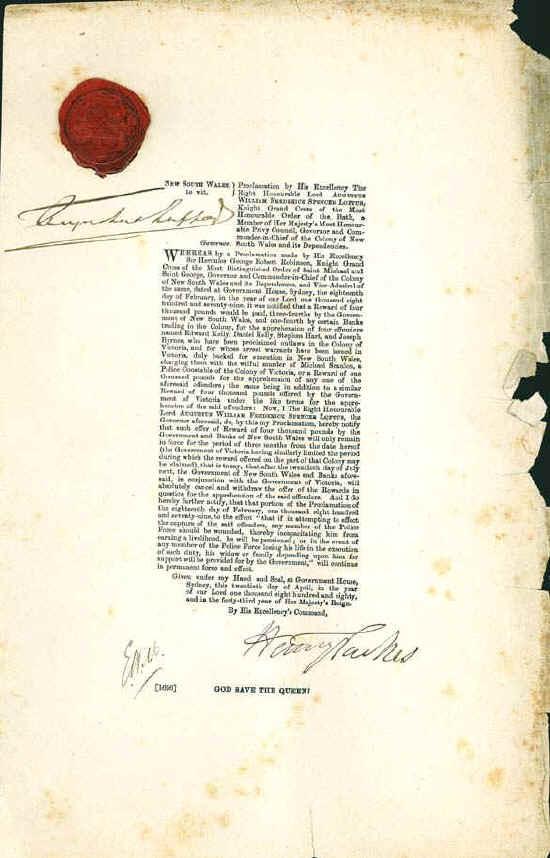 NEW SOUTH WALES, } Proclamation by His Excellency The
to wit. } Right Honourable Lord AUGUSTUS
WILLIAM FREDERICK SPENCER LOFTUS,
Knight Grand Cross of the Most
Honourable Order of the Bath, a
Member of Her Majesty's Most Honour-
able Privy Council, Governor and Com-
mander-in-Chief of the Colony of New
Governor. South Wales and its Dependencies.
WHEREAS by a Proclamation made by His Excellency
Sir Hercules George Robert Robinson, Knight Grand
Cross of the Most Distinguished Order of Saint Michael and
Saint George, Governor and Commander-in-Chief of the Colony
of New South Wales and its Dependencies, and Vice-Admiral of
the same, dated at Government House, Sydney, the eighteenth
day of February, in the year of our Lord one thousand eight
hundred and seventy-nine, it was notified that a Reward of four
thousand pounds would be paid, three-fourths by the Govern-
ment of New South Wales, and one-fourth by certain Banks
trading in the Colony, for the apprehension of four offenders
named Edward Kelly, Daniel Kelly, Stephen Hart, and Joseph
Byrne, who have been proclaimed outlaws in the Colony of
Victoria, and for whose arrest warrants have been issued in
Victoria, duly backed for execution in New South Wales,
charging them with the wilful murder of Michael Scanlon, a
Police Constable of the Colony of Victoria, or a Reward of one
thousand pounds for the apprehension of any one of the
aforesaid offenders; the same being in addition to a similar
Reward of four thousand pounds offered by the Govern-
ment of Victoria under the like terms for the appre-
hension of the said offenders: Now, I The Right Honourable
Lord AUGUSTUS WILLIAM FREDERICK SPENCER LOFTUS, the
Governor aforesaid, do, by this my Proclamation, hereby notify
that such offer of Reward of four thousand pounds by the
Government and Banks of New South Wales will only remain
in force for the period of three months from the date hereof
(the Government of Victoria having similarly limited the period
during which the reward offered on the part of that Colony may
be claimed), that is to say, that after the twentieth day of July
next, the Government of New South Wales and Banks afore-
said, in conjunction with the Government of Victoria, will
absolutely cancel and withdraw the offer of the Rewards in
question for the apprehension of the said offenders. And I do
hereby further notify, that that portion of the Proclamation of
the eighteenth day of February, one thousand eight hundred
and seventy-nine, to the effect "that if in attempting to effect
the capture of the said offenders, any member of the Police
Force should be wounded, thereby incapacitating him from
earning a livelihood, he will be pensioned; or in the event of
any member of the Police Force losing his life in the execution
of such duty, his widow or family depending upon him for
support will be provided for by the Government," will continue
in permanent force and effect.
Given under my Hand and Seal, at Government House,
Sydney, this twentieth day of April, in the year
of our Lord one thousand eight hundred and eighty,
and in the forty-third year of Her Majesty's Reign.
By His Excellency's Command,
Henry Parkes
[1696]
GOD SAVE THE QUEEN!